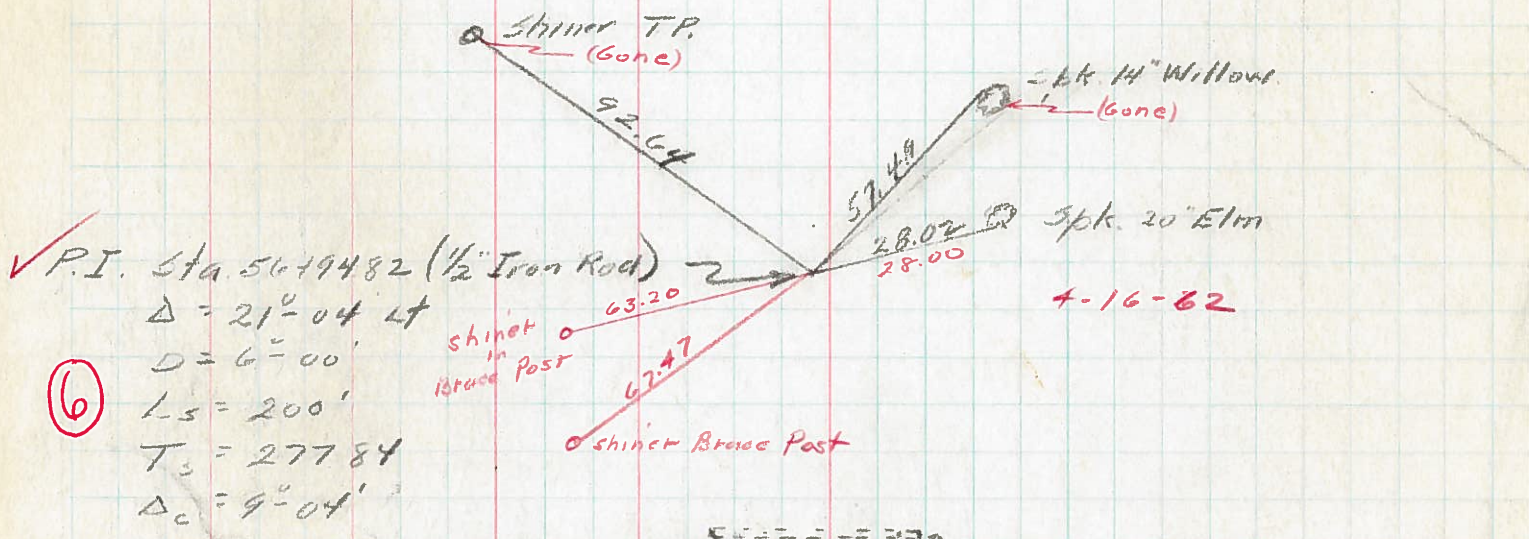 Shiner T.P.
(Gone)
Spk. 14" Willow
(Gone)
92.64
57.49
28.02
28.00
Spk. 20" Elm
4-16-62
✓ P.I. Sta. 56+94.82 (1/2" Iron Rod)
Δ = 21°-04' Lt
D = 6°-00'
Ls = 200'
Ts = 277.84
Δc = 9°-04'
6
63.20
shiner
in
Brace Post
67.47
shiner Brace Post